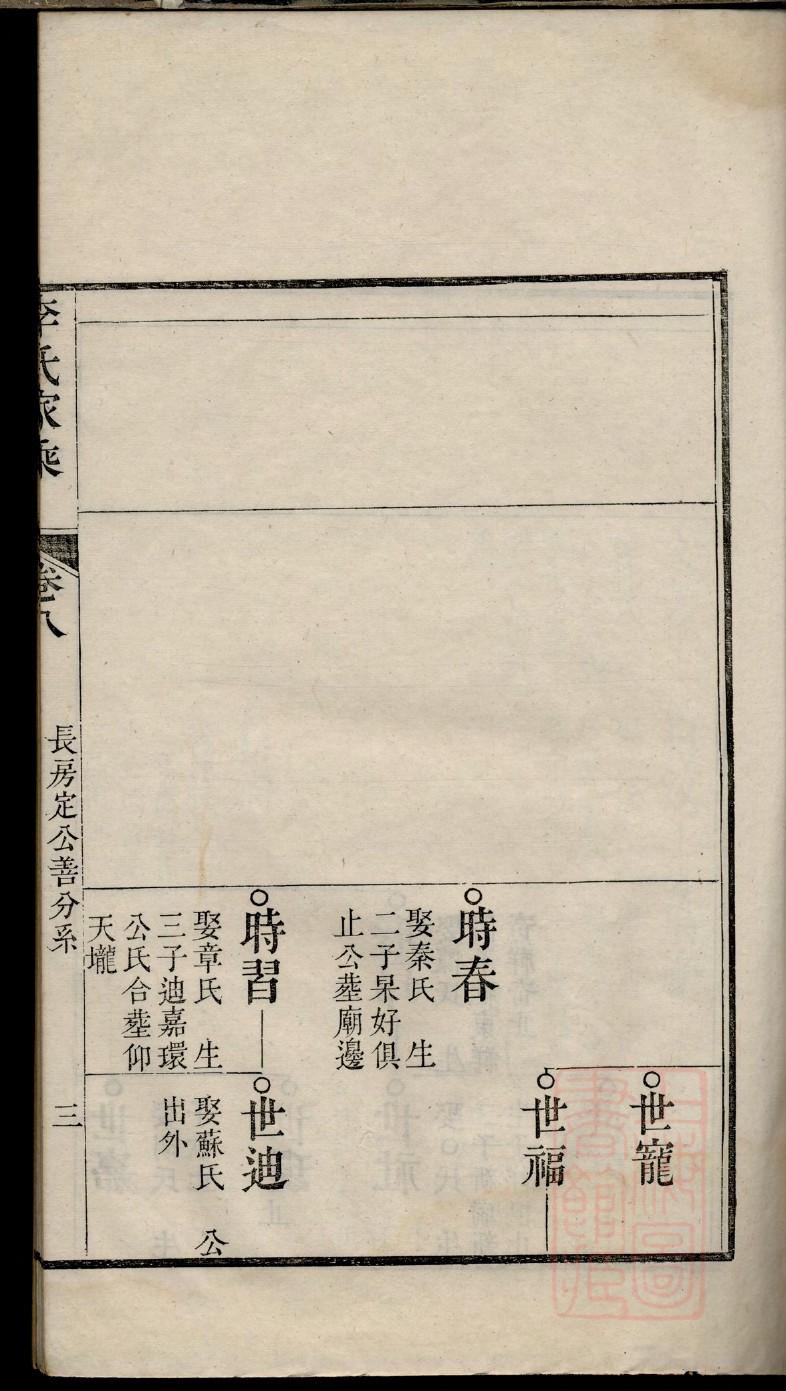 世寵
世福
時春
娶秦氏 生
二子杲好俱
止公塟廟邊
時習
娶章氏 生
三子迪嘉環
公氏合塟仰
天壠
世迪
娶蘇氏 公
出外
李氏家乘
卷八
長房定公善分系
三